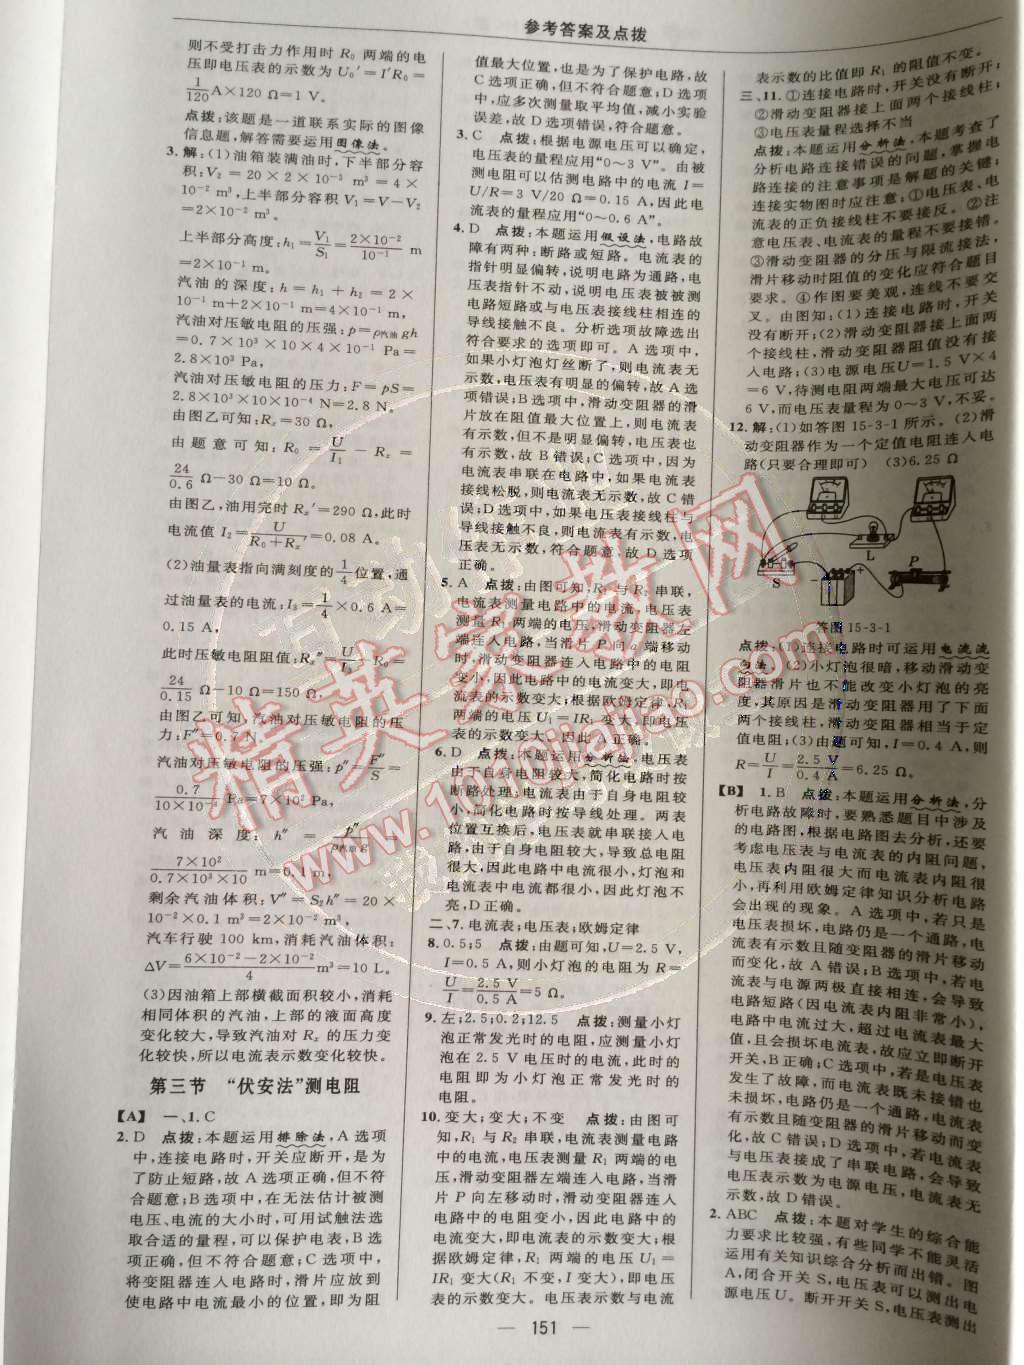 参考答案及点拨
则不受打击力作用时 R₀ 两端的电
压即电压表的示数为 U₀′=I′R₀=
1/120 A×120 Ω=1 V。
点拨:该题是一道联系实际的图像
信息题,解答需要运用图像法。
3. 解:(1)油箱装满油时,下半部分容
积:V₂=20×2×10⁻³ m³=4×
10⁻² m³,上半部分容积 V₁=V-V₂
=2×10⁻² m³。
上半部分高度:h₁=V₁/S₁=2×10⁻²/10⁻¹ m
=2×10⁻¹ m。
汽油的深度:h=h₁+h₂=2×
10⁻¹ m+2×10⁻¹ m=4×10⁻¹ m,
汽油对压敏电阻的压强:p=ρ汽油gh
=0.7×10³×10×4×10⁻¹ Pa=
2.8×10³ Pa,
汽油对压敏电阻的压力:F=pS=
2.8×10³×10×10⁻⁴ N=2.8 N。
由图乙可知:Rₓ=30 Ω,
由题意可知:R₀=U/I₁-Rₓ=
24/0.6 Ω-30 Ω=10 Ω。
由图乙,油用完时 Rₓ′=290 Ω,此时
电流值 I₂=U/(R₀+Rₓ′)=0.08 A。
(2)油量表指向满刻度的1/4位置,通
过油量表的电流:I₃=1/4×0.6 A=
0.15 A,
此时压敏电阻阻值:Rₓ″=U/I₃-R₀=
24/0.15 Ω-10 Ω=150 Ω,
由图乙可知,汽油对压敏电阻的压
力:F″=0.7 N。
汽油对压敏电阻的压强:p″=F″/S=
0.7/(10×10⁻⁴) Pa=7×10² Pa,
汽油深度:h″=p″/(ρ汽油g)=
7×10²/(0.7×10³×10) m=0.1 m,
剩余汽油体积:V″=S₂h″=20×
10⁻²×0.1 m³=2×10⁻² m³,
汽车行驶 100 km,消耗汽油体积:
ΔV=(6×10⁻²-2×10⁻²)/4 m³=10 L。
(3)因油箱上部横截面积较小,消耗
相同体积的汽油,上部的液面高度
变化较大,导致汽油对 Rₓ 的压力变
化较快,所以电流表示数变化较快。
第三节 “伏安法”测电阻
【A】 一、1. C
2. D 点拨:本题运用排除法,A 选项
中,连接电路时,开关应断开,是为
了防止短路,故 A 选项正确,但不符
合题意;B 选项中,在无法估计被测
电压、电流的大小时,可用试触法选
取合适的量程,可以保护电表,B 选
项正确,但不符合题意;C 选项中,
将变阻器连入电路时,滑片应放到
使电路中电流最小的位置,即为阻
值最大位置,也是为了保护电路,故
C 选项正确,但不符合题意;D 选项
中,应多次测量取平均值,减小实验
误差,故 D 选项错误,符合题意。
3. C 点拨:根据电源电压可以确定,
电压表的量程应用“0～3 V”。由被
测电阻可以估测电路中的电流 I=
U/R=3 V/20 Ω=0.15 A,因此电
流表的量程应用“0～0.6 A”。
4. D 点拨:本题运用假设法,电路故
障有两种:断路或短路。电流表的
指针明显偏转,说明电路为通路,电
压表指针不动,说明电压表被被测
电路短路或与电压表接线柱相连的
导线接触不良。分析选项故障选出
符合要求的选项即可。A 选项中,
如果小灯泡灯丝断了,则电流表无
示数,电压表有明显的偏转,故 A 选
项错误;B 选项中,滑动变阻器的滑
片放在阻值最大位置上,则电流表
有示数,但不是明显偏转,电压表也
有示数,故 B 错误;C 选项中,因为
电流表串联在电路中,如果电流表
接线松脱,则电流表无示数,故 C 错
误;D 选项中,如果电压表接线柱与
导线接触不良,则电流表有示数,电
压表无示数,符合题意,故 D 选项
正确。
5. A 点拨:由图可知,R₁ 与 R₂ 串联,
电流表测量电路中的电流,电压表
测量 R₁ 两端的电压,滑动变阻器左
端连入电路,当滑片 P 向 a 端移动
时,滑动变阻器连入电路中的电阻
变小,因此电路中的电流变大,即电
流表的示数变大;根据欧姆定律,R₁
两端的电压 U₁=IR₁ 变大,即电压
表的示数变大。因此 A 正确。
6. D 点拨:本题运用分析法,电压表
由于自身电阻较大,简化电路时按
断路处理;电流表由于自身电阻较
小,简化电路时按导线处理。两表
位置互换后,电压表就串联接入电
路,由于自身电阻较大,导致总电阻
很大,因此电路中电流很小,灯泡和
电流表中电流都很小,因此灯泡不
亮,D 正确。
二、7. 电流表;电压表;欧姆定律
8. 0.5;5 点拨:由题可知,U=2.5 V,
I=0.5 A,则小灯泡的电阻为 R=
U/I=2.5 V/0.5 A=5 Ω。
9. 左;2.5;0.2;12.5 点拨:测量小灯
泡正常发光时的电阻,应测量小灯
泡在 2.5 V 电压时的电流,此时的
电阻即为小灯泡正常发光时的
电阻。
10. 变大;变大;不变 点拨:由图可
知,R₁ 与 R₂ 串联,电流表测量电路
中的电流,电压表测量 R₁ 两端的电
压,滑动变阻器左端连入电路,当滑
片 P 向左移动时,滑动变阻器连入
电路中的电阻变小,因此电路中的
电流变大,即电流表的示数变大;根
据欧姆定律,R₁ 两端的电压 U₁=
IR₁ 变大(R₁ 不变,I 变大),即电压
表的示数变大。电压表示数与电流
表示数的比值即 R₁ 的阻值不变。
三、11. ①连接电路时,开关没有断开;
②滑动变阻器接上面两个接线柱;
③电压表量程选择不当
点拨:本题运用分析法,本题考查了
分析电路连接错误的问题,掌握电
路连接的注意事项是解题的关键;
连接实物图时应注意:①电压表、电
流表的正负接线柱不要接反。②注
意电压表、电流表的量程不要接错。
③滑动变阻器的分压与限流接法,
滑片移动时阻值的变化应符合题目
要求。④作图要美观,连线不要交
叉。由图知:(1)连接电路时,开关
没有断开;(2)滑动变阻器接上面两
个接线柱,滑动变阻器阻值没有接
入电路;(3)电源电压 U=1.5 V×4
=6 V,待测电阻两端最大电压可达
6 V,而电压表量程为 0～3 V,不妥。
12. 解:(1)如答图 15-3-1 所示。(2)滑
动变阻器作为一个定值电阻连入电
路(只要合理即可) (3)6.25 Ω
S
L
P
答图 15-3-1
点拨:(1)连接电路时可运用电流流
向法;(2)小灯泡很暗,移动滑动变
阻器滑片也不能改变小灯泡的亮
度,其原因是滑动变阻器用了下面
两个接线柱,滑动变阻器相当于定
值电阻;(3)由题可知,I=0.4 A,则
R=U/I=2.5 V/0.4 A=6.25 Ω。
【B】 1. B 点拨:本题运用分析法,分
析电路故障时,要熟悉题目中涉及
的电路图,根据电路图去分析,还要
考虑电压表与电流表的内阻问题,
电压表内阻很大而电流表内阻很
小,再利用欧姆定律知识分析电路
会出现的现象。A 选项中,若只是
电压表损坏,电路仍是一个通路,电
流表有示数且随变阻器的滑片移动
而变化,故 A 错误;B 选项中,若电
流表与电源两极直接相连,会导致
电路短路(因电流表内阻非常小),
电路中电流过大,超过电流表最大
值,且会损坏电流表,故应立即断开
开关,B 正确;C 选项中,若是电压表
发生了故障,而电流表既未接错也
未损坏,电路仍是一个通路,电流表
有示数且随变阻器的滑片移动而变
化,故 C 错误;D 选项中,若电流表
与电压表接成了串联电路,会导致
电压表示数为电源电压,电流表无
示数,故 D 错误。
2. ABC 点拨:本题对学生的综合能
力要求比较强,有些同学不能灵活
运用有关知识综合分析而出错。图
A,闭合开关 S,电压表可以测出电
源电压 U。断开开关 S,电压表测出
— 151 —
精英家教网
www.1010jiajiao.com